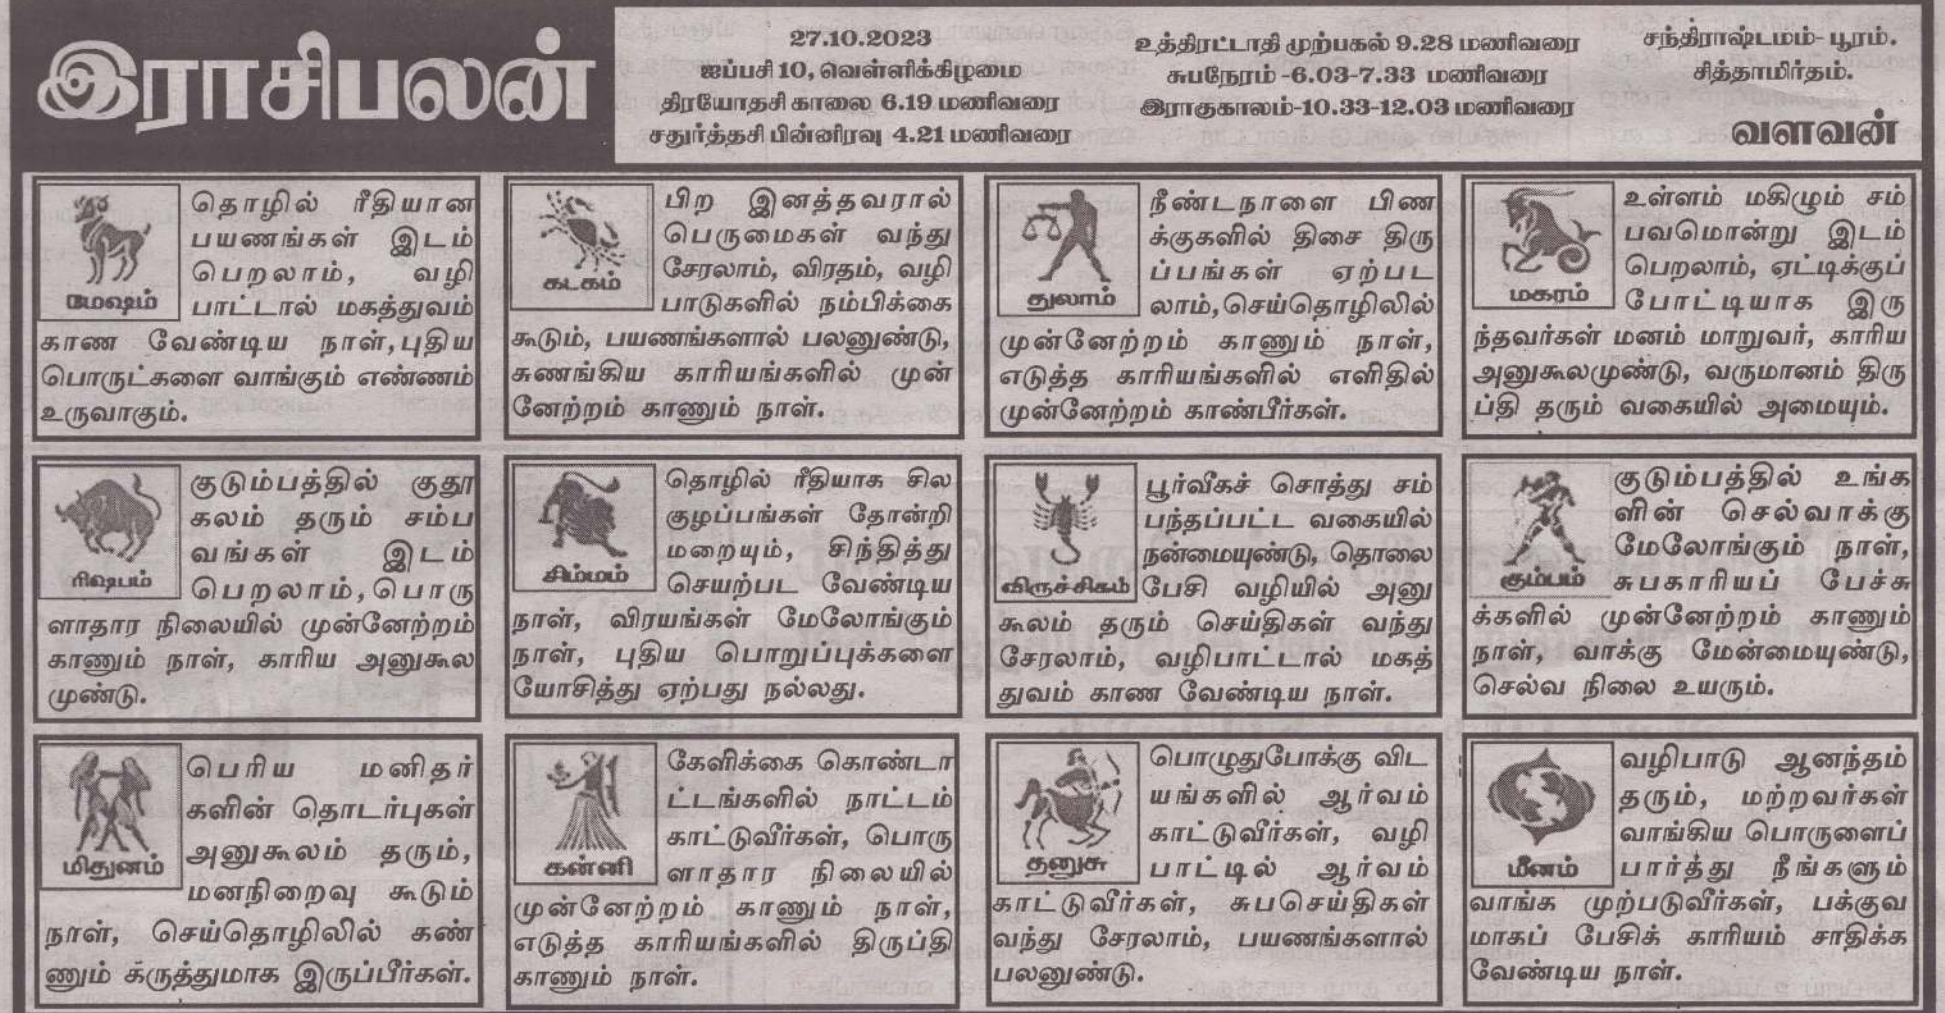 இராசிபலன்
27.10.2023
ஐப்பசி 10, வெள்ளிக்கிழமை
திரயோதசி காலை 6.19 மணிவரை
சதுர்த்தசி பின்னிரவு 4.21 மணிவரை
உத்திரட்டாதி முற்பகல் 9.28 மணிவரை
சுபநேரம் -6.03-7.33 மணிவரை
இராகுகாலம்-10.33-12.03 மணிவரை
சந்திராஷ்டமம்- பூரம்.
சித்தாமிர்தம்.
வளவன்
மேஷம்
தொழில் ரீதியான
பயணங்கள் இடம்
பெறலாம், வழி
பாட்டால் மகத்துவம்
காண வேண்டிய நாள்,புதிய
பொருட்களை வாங்கும் எண்ணம்
உருவாகும்.
ரிஷபம்
குடும்பத்தில் குதூ
கலம் தரும் சம்ப
வங்கள் இடம்
பெறலாம்,பொரு
ளாதார நிலையில் முன்னேற்றம்
காணும் நாள், காரிய அனுகூல
முண்டு.
மிதுனம்
பெரிய மனிதர்
களின் தொடர்புகள்
அனுகூலம் தரும்,
மனநிறைவு கூடும்
நாள், செய்தொழிலில் கண்
ணும் கருத்துமாக இருப்பீர்கள்.
கடகம்
பிற இனத்தவரால்
பெருமைகள் வந்து
சேரலாம், விரதம், வழி
பாடுகளில் நம்பிக்கை
கூடும், பயணங்களால் பலனுண்டு,
சுணங்கிய காரியங்களில் முன்
னேற்றம் காணும் நாள்.
சிம்மம்
தொழில் ரீதியாக சில
குழப்பங்கள் தோன்றி
மறையும், சிந்தித்து
செயற்பட வேண்டிய
நாள், விரயங்கள் மேலோங்கும்
நாள், புதிய பொறுப்புக்களை
யோசித்து ஏற்பது நல்லது.
கன்னி
கேளிக்கை கொண்டா
ட்டங்களில் நாட்டம்
காட்டுவீர்கள், பொரு
ளாதார நிலையில்
முன்னேற்றம் காணும் நாள்,
எடுத்த காரியங்களில் திருப்தி
காணும் நாள்.
துலாம்
நீண்டநாளை பிண
க்குகளில் திசை திரு
ப்பங்கள் ஏற்பட
லாம்,செய்தொழிலில்
முன்னேற்றம் காணும் நாள்,
எடுத்த காரியங்களில் எளிதில்
முன்னேற்றம் காண்பீர்கள்.
விருச்சிகம்
பூர்வீகச் சொத்து சம்
பந்தப்பட்ட வகையில்
நன்மையுண்டு, தொலை
பேசி வழியில் அனு
கூலம் தரும் செய்திகள் வந்து
சேரலாம், வழிபாட்டால் மகத்
துவம் காண வேண்டிய நாள்.
தனுசு
பொழுதுபோக்கு விட
யங்களில் ஆர்வம்
காட்டுவீர்கள், வழி
பாட்டில் ஆர்வம்
காட்டுவீர்கள், சுபசெய்திகள்
வந்து சேரலாம், பயணங்களால்
பலனுண்டு.
மகரம்
உள்ளம் மகிழும் சம்
பவமொன்று இடம்
பெறலாம், ஏட்டிக்குப்
போட்டியாக இரு
ந்தவர்கள் மனம் மாறுவர், காரிய
அனுகூலமுண்டு, வருமானம் திரு
ப்தி தரும் வகையில் அமையும்.
கும்பம்
குடும்பத்தில் உங்க
ளின் செல்வாக்கு
மேலோங்கும் நாள்,
சுபகாரியப் பேச்சு
க்களில் முன்னேற்றம் காணும்
நாள், வாக்கு மேன்மையுண்டு,
செல்வ நிலை உயரும்.
மீனம்
வழிபாடு ஆனந்தம்
தரும், மற்றவர்கள்
வாங்கிய பொருளைப்
பார்த்து நீங்களும்
வாங்க முற்படுவீர்கள், பக்குவ
மாகப் பேசிக் காரியம் சாதிக்க
வேண்டிய நாள்.